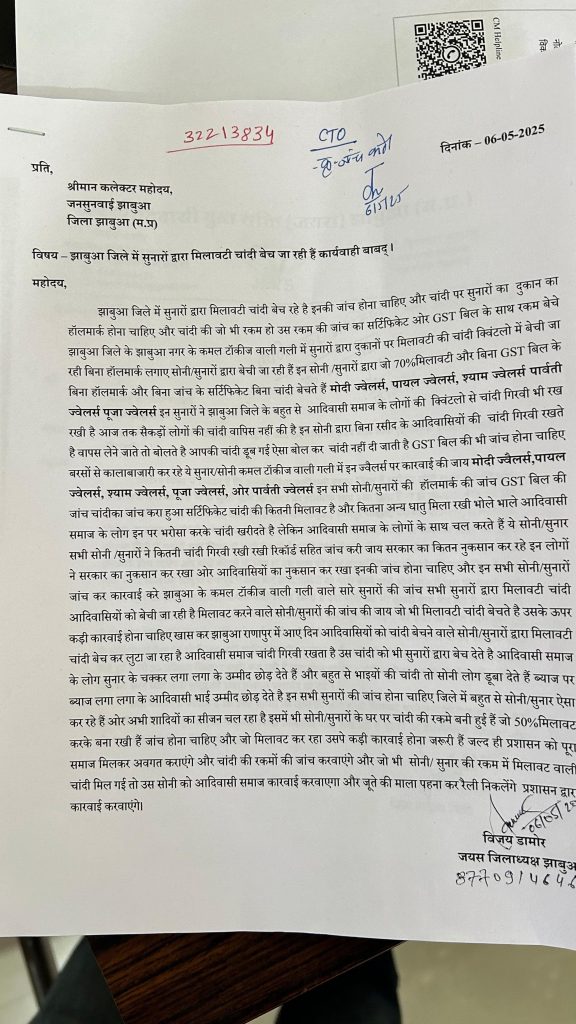 CM Helpline
32213834
CTO
दिनांक – 06-05-2025
प्रति,
श्रीमान कलेक्टर महोदय,
जनसुनवाई झाबुआ
जिला झाबुआ (म.प्र)
विषय – झाबुआ जिले में सुनारों द्वारा मिलावटी चांदी बेच जा रही हैं कार्यवाही बाबद्।
महोदय,
झाबुआ जिले में सुनारों द्वारा मिलावटी चांदी बेच रहे है इनकी जांच होना चाहिए और चांदी पर सुनारों का दुकान का
हॉलमार्क होना चाहिए और चांदी की जो भी रकम हो उस रकम की जांच का सर्टिफिकेट ओर GST बिल के साथ रकम बेचे
झाबुआ जिले के झाबुआ नगर के कमल टॉकीज वाली गली में सुनारों द्वारा दुकानों पर मिलावटी की चांदी क्विंटलो में बेची जा
रही बिना हॉलमार्क लगाए सोनी/सुनारों द्वारा बेची जा रही हैं इन सोनी /सुनारों द्वारा जो 70%मिलावटी और बिना GST बिल के
बिना हॉलमार्क और बिना जांच के सर्टिफिकेट बिना चांदी बेचते हैं मोदी ज्वेलर्स, पायल ज्वेलर्स, श्याम ज्वेलर्स पार्वती
ज्वेलर्स पूजा ज्वेलर्स इन सुनारों ने झाबुआ जिले के बहुत से आदिवासी समाज के लोगों की क्विंटलो से चांदी गिरवी भी रख
रखी है आज तक सैकड़ों लोगों की चांदी वापिस नहीं की है इन सोनी द्वारा बिना रसीद के आदिवासियों की चांदी गिरवी रखते
है वापस लेने जाते तो बोलते है आपकी चांदी डूब गई ऐसा बोल कर चांदी नहीं दी जाती है GST बिल की भी जांच होना चाहिए
बरसों से कालाबाजारी कर रहे ये सुनार/सोनी कमल टॉकीज वाली गली में इन ज्वैलर्स पर कारवाई की जाय मोदी ज्वैलर्स,पायल
ज्वेलर्स, श्याम ज्वेलर्स, पूजा ज्वेलर्स, ओर पार्वती ज्वेलर्स इन सभी सोनी/सुनारों की हॉलमार्क की जांच GST बिल की
जांच चांदीका जांच करा हुआ सर्टिफिकेट चांदी की कितनी मिलावट है और कितना अन्य धातु मिला रखी भोले भाले आदिवासी
समाज के लोग इन पर भरोसा करके चांदी खरीदते है लेकिन आदिवासी समाज के लोगों के साथ चल करते हैं ये सोनी/सुनार
सभी सोनी /सुनारों ने कितनी चांदी गिरवी रखी रखी रिकॉर्ड सहित जांच करी जाय सरकार का कितन नुकसान कर रहे इन लोगों
ने सरकार का नुकसान कर रखा ओर आदिवासियों का नुकसान कर रखा इनकी जांच होना चाहिए और इन सभी सोनी/सुनारों
जांच कर कारवाई करे झाबुआ के कमल टॉकीज वाली गली वाले सारे सुनारों की जांच सभी सुनारों द्वारा मिलावटी चांदी
आदिवासियों को बेची जा रही है मिलावट करने वाले सोनी/सुनारों की जांच की जाय जो भी मिलावटी चांदी बेचते है उसके ऊपर
कड़ी कारवाई होना चाहिए खास कर झाबुआ राणापुर में आए दिन आदिवासियों को चांदी बेचने वाले सोनी/सुनारों द्वारा मिलावटी
चांदी बेच कर लुटा जा रहा है आदिवासी समाज चांदी गिरवी रखता है उस चांदी को भी सुनारों द्वारा बेच देते है आदिवासी समाज
के लोग सुनार के चक्कर लगा लगा के उम्मीद छोड़ देते हैं और बहुत से भाइयों की चांदी तो सोनी लोग डूबा देते हैं ब्याज पर
ब्याज लगा लगा के आदिवासी भाई उम्मीद छोड़ देते है इन सभी सुनारों की जांच होना चाहिए जिले में बहुत से सोनी/सुनार ऐसा
कर रहे हैं ओर अभी शादियों का सीजन चल रहा है इसमें भी सोनी/सुनारों के घर पर चांदी की रकमे बनी हुई हैं जो 50%मिलावट
करके बना रखी हैं जांच होना चाहिए और जो मिलावट कर रहा उसपे कड़ी कारवाई होना जरूरी हैं जल्द ही प्रशासन को पूरा
समाज मिलकर अवगत कराएंगे और चांदी की रकमों की जांच करवाएंगे और जो भी सोनी/ सुनार की रकम में मिलावट वाली
चांदी मिल गई तो उस सोनी को आदिवासी समाज कारवाई करवाएगा और जूते की माला पहना कर रैली निकलेंगे प्रशासन द्वार
कारवाई करवाएंगे।
विजय डामोर
जयस जिलाध्यक्ष झाबुआ